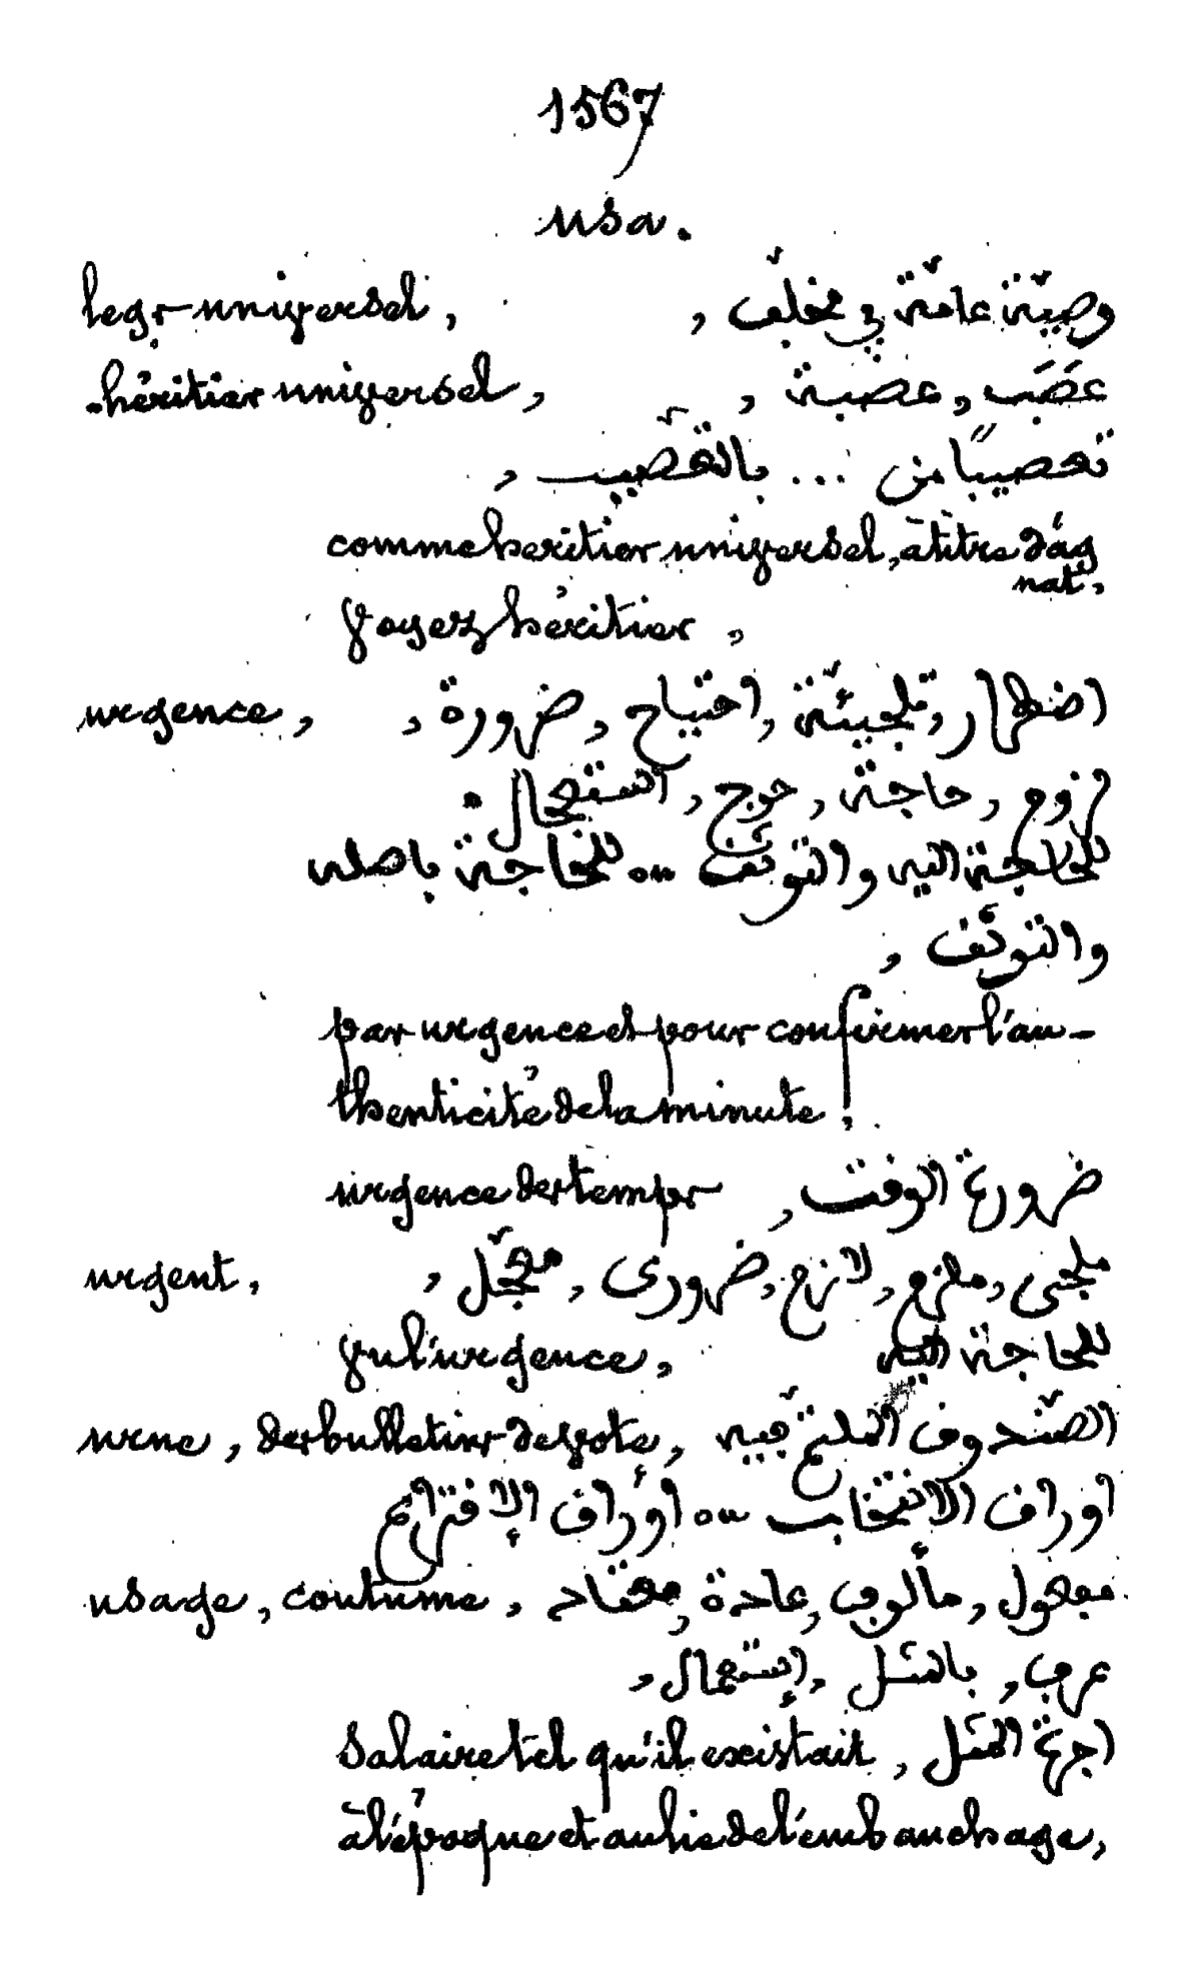 1567
usa.
legs universel, وصيّة عامّة في مخلّف ,
héritier universel, عَصَب , عصبة ,
تعصيبًا من ... بالتعّصيب ,
comme heritier universel, à titre d'ag
nat,
voyez héritier ,
urgence, اضطرار , تلجيئة , احتياج , ضرورة ,
لزوم , حاجة , حوج , استعجال .
للحاجة اليه والتوثّف ... للحاجة باصله
والتوثّف ,
par urgence et pour confirmer l'au-
thenticité de la minute,
urgence des temps ضرورة الوقت ,
urgent, ملجئ , ملزم , لازم , ضرورى , معجّل ,
vu l'urgence, للحاجة اليه
urne, des bulletins de vote, الصّندوق فيه
اوراق الانتخاب ... أوراق الإقتراع
usage, coutume, مفعول , مألوف , عادة , معتاد
عرف , بالمثل , إستعمال ,
salaire tel qu'il existait , اجرة المثل
à l'époque et au lie de l'embauchage,